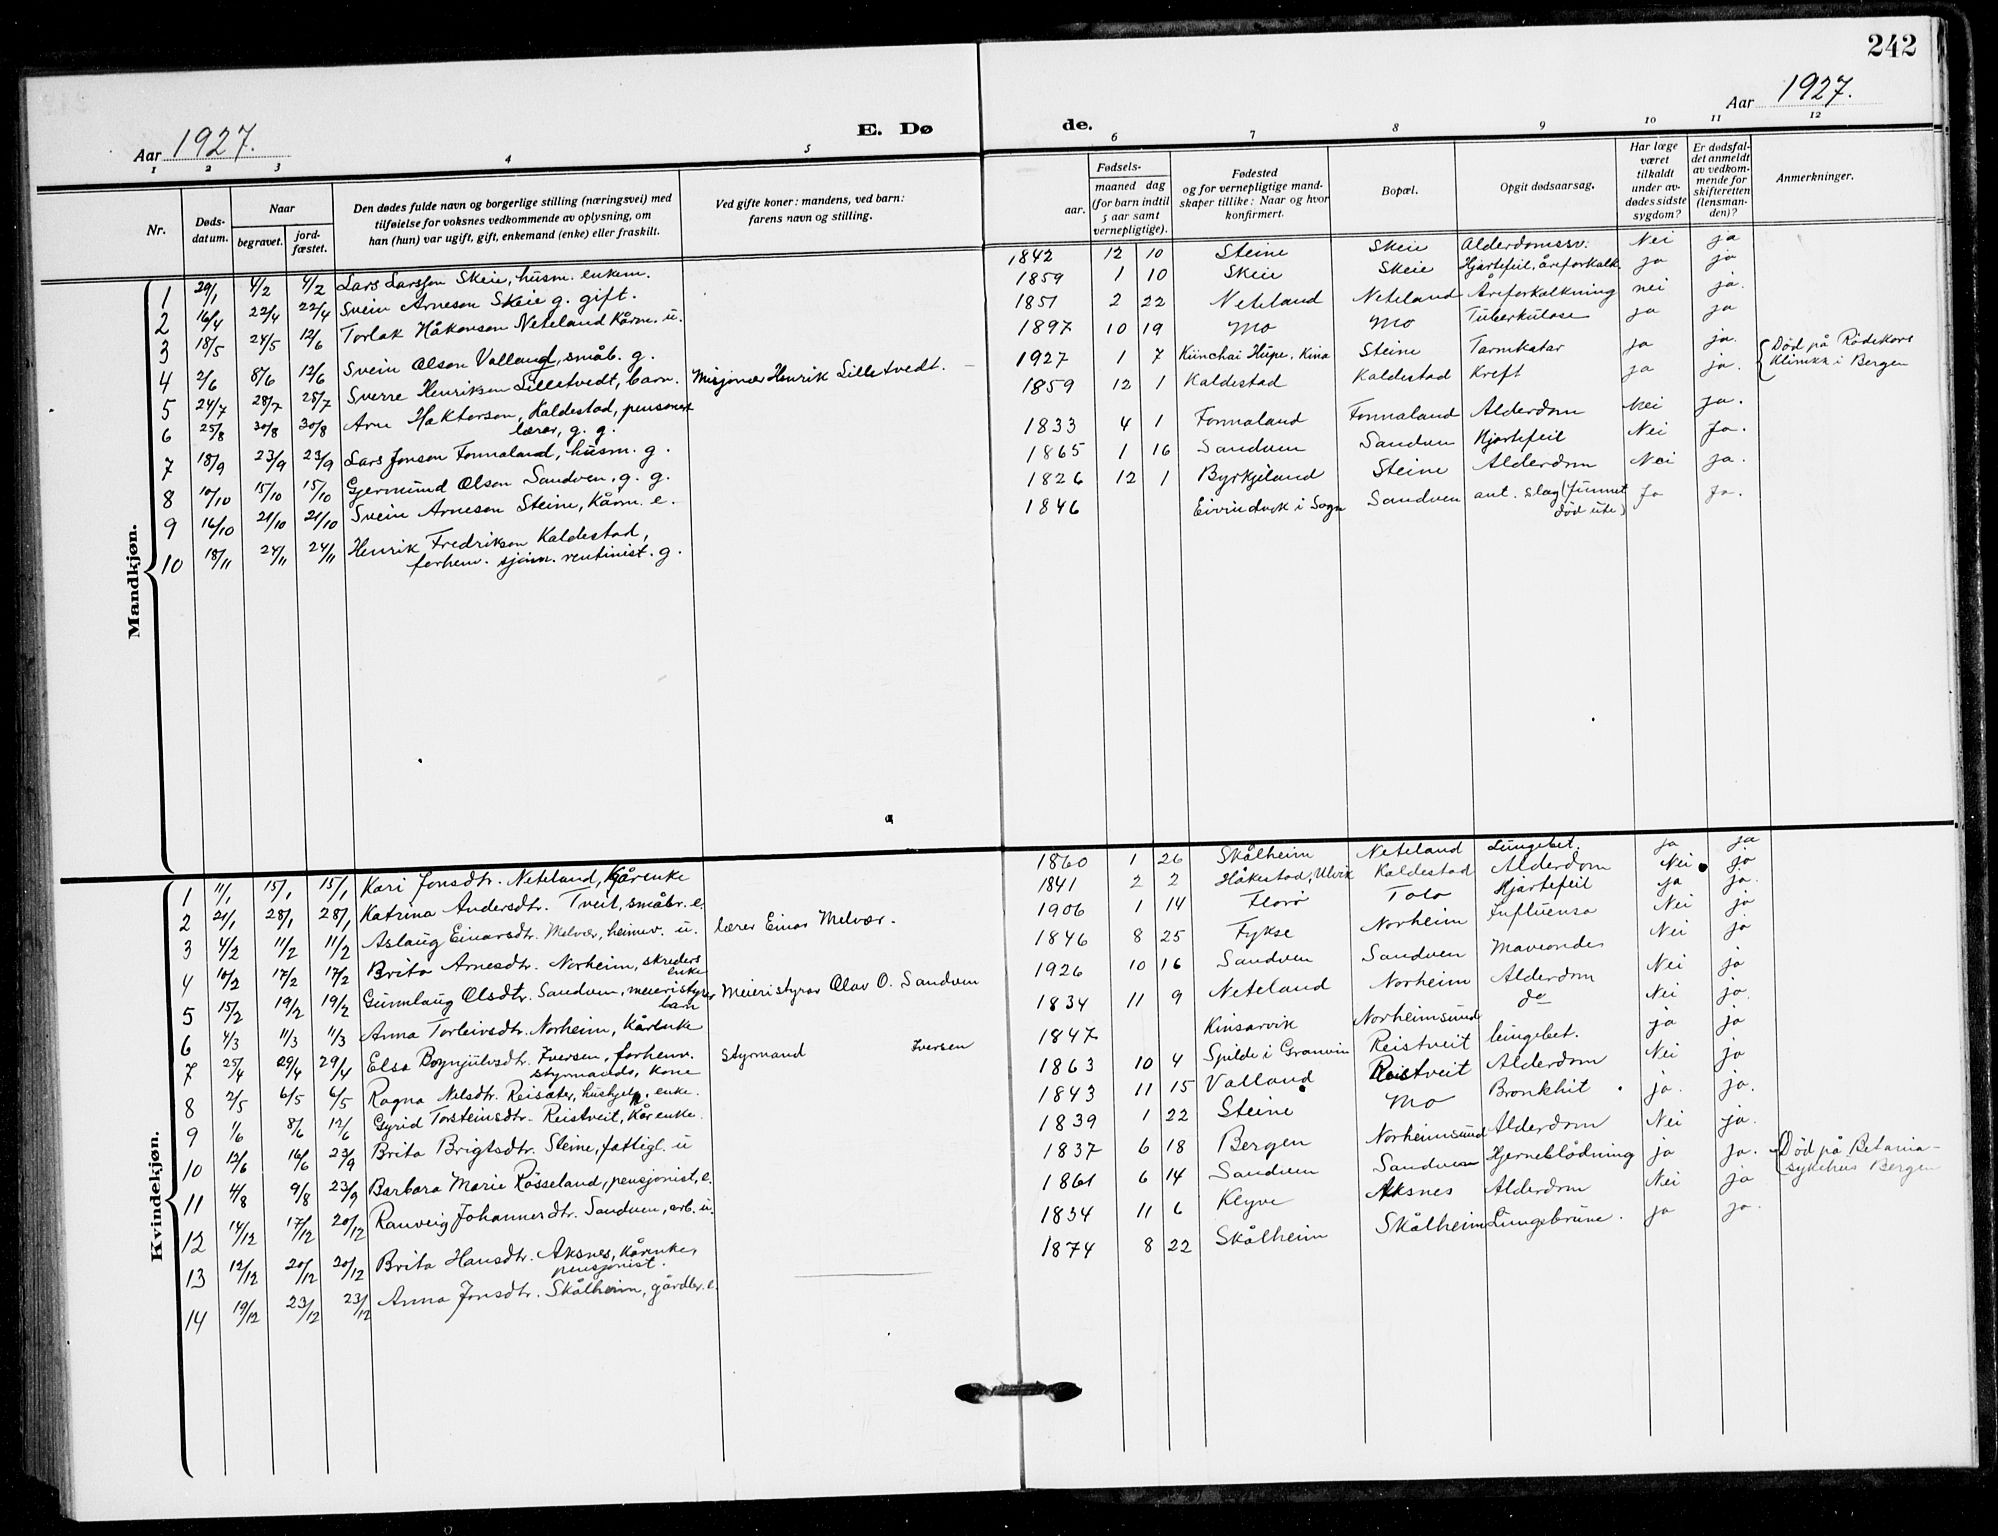 242
Aar 1927.
E. Dø
de.
Aar 1927.
1 2 3 4 5 6 7 8 9 10 11 12
Nr.
Døds-
datum.
Naar
begravet.
jord-
fæstet.
Den dødes fulde navn og borgerlige stilling (næringsvei) med
tilføielse for voksnes vedkommende av oplysning, om
han (hun) var ugift, gift, enkemand (enke) eller fraskilt.
Ved gifte koner: mandens, ved barn:
farens navn og stilling.
Fødsels-
aar.
maaned dag
(for barn indtil
5 aar samt
vernepligtige).
Fødested
og for vernepligtige mand-
skaper tillike: Naar og hvor
konfirmert.
Bopæl.
Opgit dødsaarsag.
Har læge
været
tilkaldt
under av-
dødes sidste
sygdom?
Er dødsfal-
det anmeldt
av vedkom-
mende for
skifteretten
(lensman-
den)?
Anmerkninger.
Mandkjøn.
1 29/1 4/2 4/2 Lars Larsson Skeie, husm. enkem. 1842 12 10 Steine Skeie Alderdomssv. Nei ja
2 16/4 22/4 22/4 Svein Arneson Skeie g. gift. 1859 1 10 Skeie Skeie Hjartefeil, åreforkalk. ja ja
3 18/5 24/5 12/6 Torlak Håkonson Neteland Kårm. u. 1851 2 22 Neteland Neteland Åreforkalkning nei ja.
4 2/6 8/6 12/6 Svein Olson Valland, småb. g. 1897 10 19 Mo Mo Tuberkulose ja ja
5 24/7 28/7 28/7 Sverre Henriksen Lilletvedt, barn. Misjonær Henrik Lilletvedt. 1927 1 7 Kinchai Hupe, Kina Steine Tarmkatar ja ja.
6 25/8 30/8 30/8 Arne Haktorson, Kaldestad, pensonert
lærer, g. g. 1859 12 1 Kaldestad Kaldestad Kreft ja ja. Død på Rødekors
Klinikk i Bergen
7 18/9 23/9 23/9 Lars Jonson Fonnaland, husm. g. 1833 4 1 Fonnaland Fonnaland Alderdom Nei ja.
8 10/10 15/10 15/10 Gjermund Olson Sandven, g. g. 1865 1 16 Sandven Sandven Hjartefeil Nei Ja.
9 16/10 21/10 21/10 Svein Arneson Steine, Kårm. e. 1826 12 1 Byrkjeland Steine Alderdom Nei ja.
10 18/11 24/11 24/11 Henrik Fredrikson Kaldestad,
forhenv. sjøm. rentinist. g. 1846 Eivindvik i Sogn Sandven ant. slag (funnet
død ute) Ja Ja.
Kvindekjøn.
1 11/1 15/1 15/1 Kari Jonsdtr. Neteland, Kårenke 1860 1 26 Skålheim Neteland Lungebet. ja ja
2 21/1 28/1 28/1 Katrina Andersdtr. Tveit, småbr. e. 1841 2 2 Håkestad, Ulvik Kaldestad Alderdom Nei ja
3 4/2 11/2 11/2 Aslaug Einarsdtr. Melvær, heimev. u. lærer Einar Melvær. 1906 1 14 Florø Tolo Hjartefeil ja ja.
4 10/2 17/2 17/2 Brita Arnesdtr. Norheim, skredders
enke 1846 8 25 Fykse Norheim Influensa Nei ja
5 15/2 19/2 19/2 Gunnlaug Olsdtr. Sandven, meieristyrer
barn Meieristyrar Olav O. Sandven 1926 10 16 Sandven Sandven Maveondes Nei ja
6 4/3 11/3 11/3 Anna Torleivsdtr. Norheim, Kårenke 1834 11 9 Neteland Norheim Alderdom Nei ja
7 25/4 29/4 29/4 Elsa Bognjulvsdtr. Iversen, forhenv.
styrmands, kone styrmand Iversen 1847 Kinsarvik Norheimsund do Nei ja.
8 2/5 6/5 6/5 Ragna Nelsdtr. Reisæter, hushjelp, enke. 1863 10 4 Spilde i Granvin Reistveit lungebet. ja ja
9 1/6 8/6 12/6 Gyrid Torsteinsdtr. Reistveit, Kårenke. 1843 11 15 Valland Reistveit Alderdom Nei ja
10 12/6 16/6 23/9 Brita Brigtsdtr. Steine, fattigl. u 1839 1 22 Steine Mo Bronkhit ja. ja.
11 4/8 9/8 23/9 Barbara Marie Røsseland, pensjonist, e. 1837 6 18 Bergen Norheimsund Alderdom Nei ja.
12 14/12 17/12 20/12 Ranveig Johannesdtr. Sandven, arb. u. 1861 6 14 Sandven Sandven Hjerneblødning ja ja. Død på Betania-
sykehus Bergen
13 12/12 20/12 20/12 Brita Hansdtr. Aksnes, Kårenke,
pensjonist. 1834 11 6 Klyve Aksnes Alderdom Nei ja
14 19/12 23/12 23/12 Anna Jonsdtr. Skålheim, gårdbr. e. 1874 8 22 Skålheim Skålheim Lungebrune. ja ja.